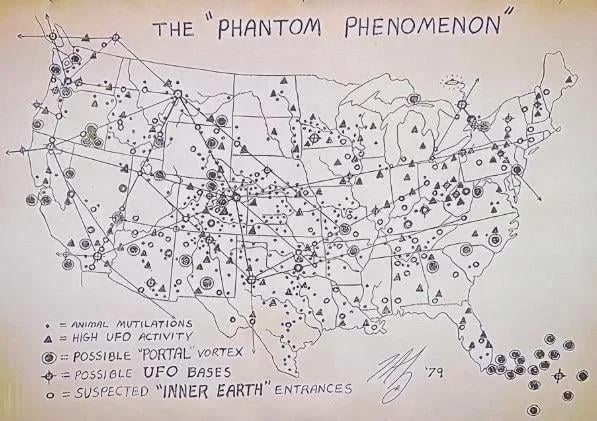 THE "PHANTOM PHENOMENON"
• = ANIMAL MUTILATIONS
▲ = HIGH UFO ACTIVITY
◉ = POSSIBLE "PORTAL" VORTEX
⌖ = POSSIBLE UFO BASES
○ = SUSPECTED "INNER EARTH" ENTRANCES
'79